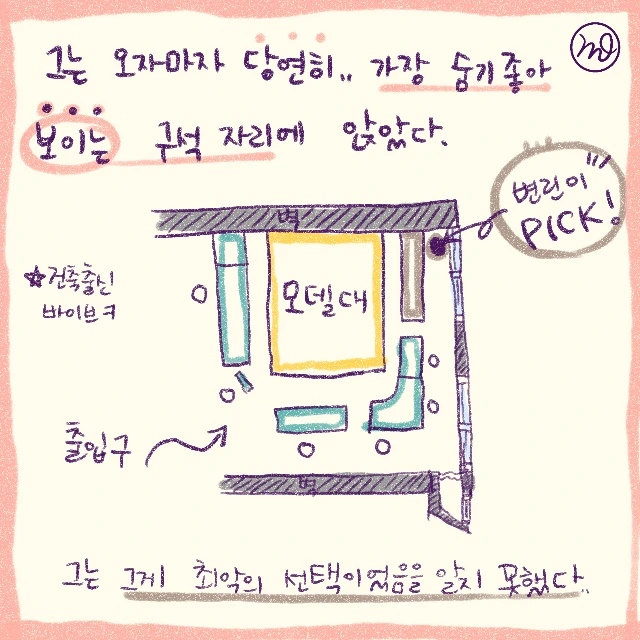 그는 오자마자 당연히.. 가장 숨기좋아
보이는 구석 자리에 앉았다.
변린이
PICK!
벽
☆건축출신
바이브ㅋ
모델대
출입구
벽
그는 그게 최악의 선택이었음을 알지 못했다..